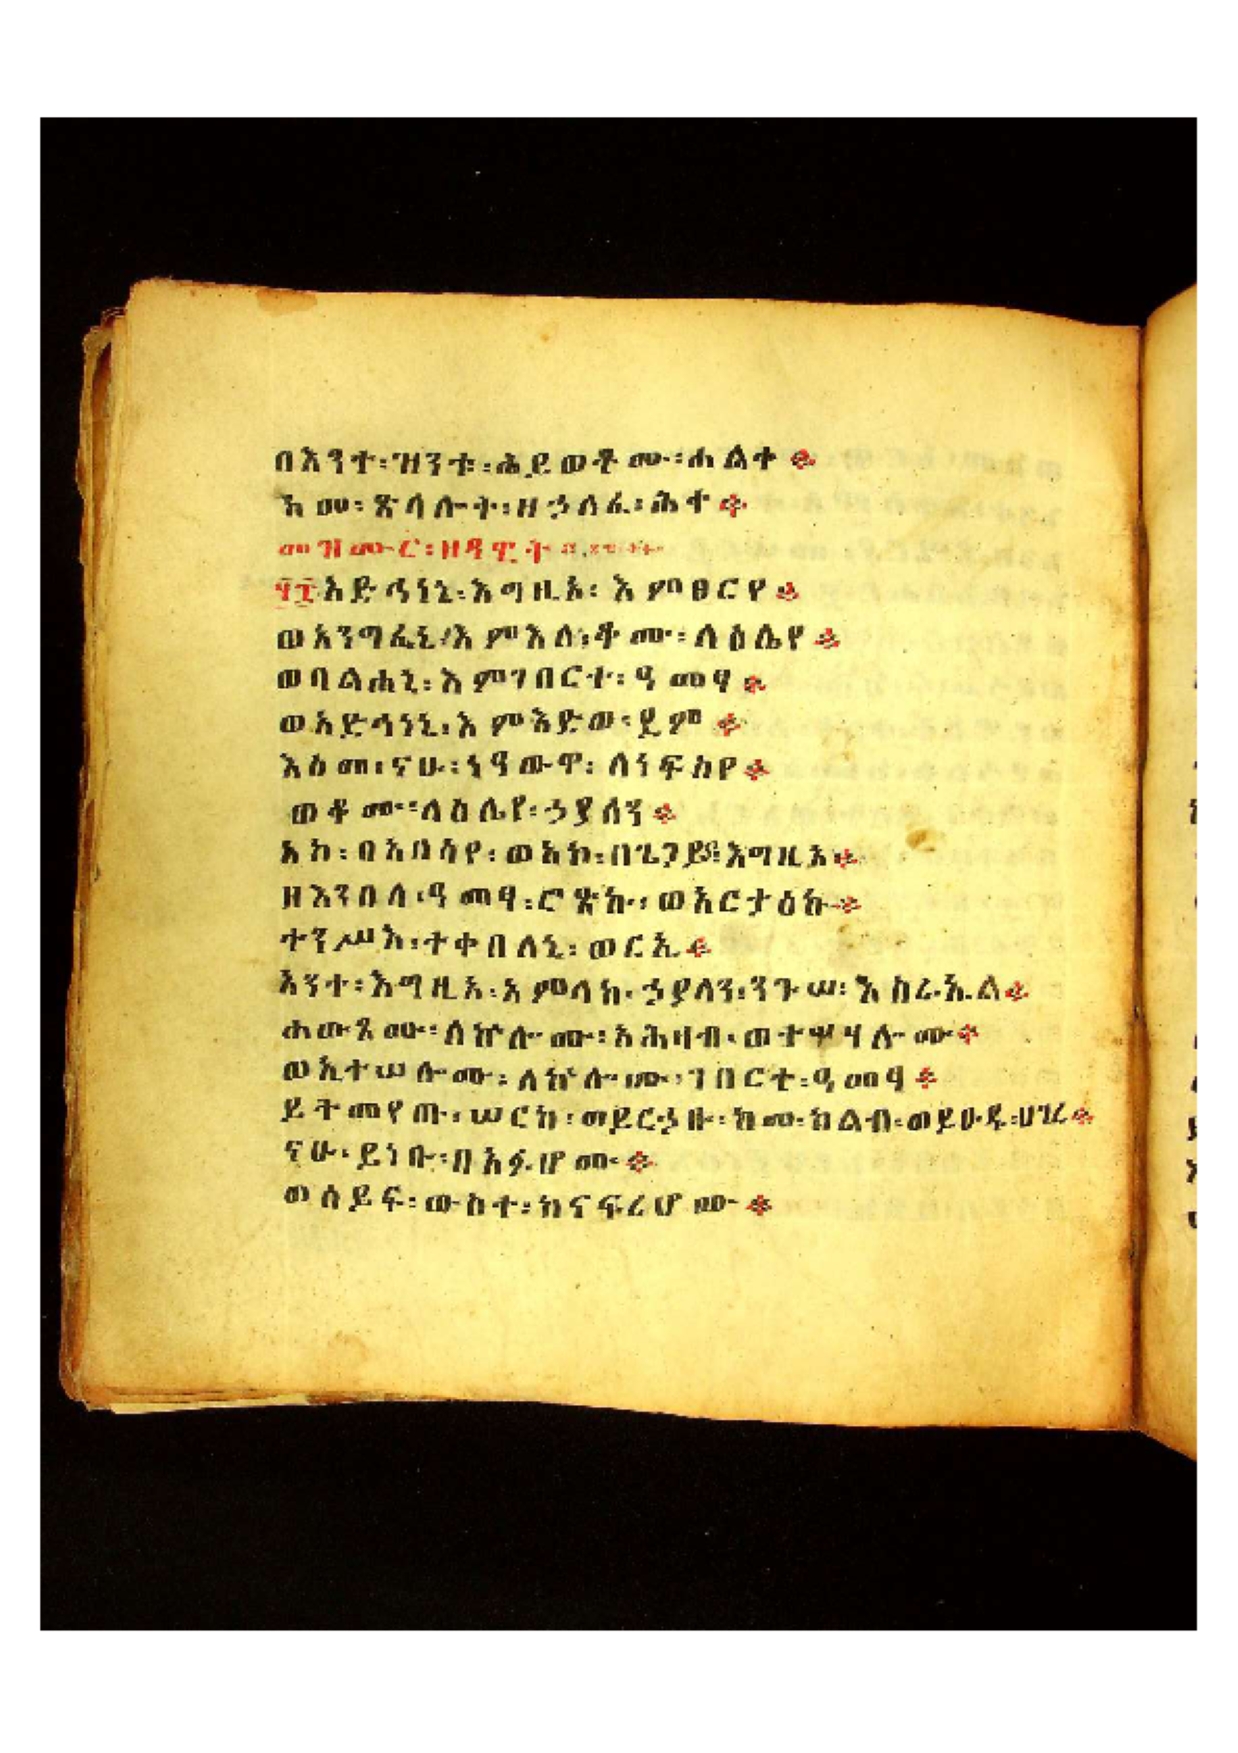 በእንተ፡ዝንቱ፡ሕይወቶሙ፡ሐልቀ።
ከመ፡ጽላሎት፡ዘኃለፈ፡ሕተ።
መዝሙር፡ዘዳዊት
፶፰አድኅነኒ፡እግዚአ፡እምፀርየ።
ወአንግፈኒ፡እምእለ፡ቆሙ፡ላዕሌየ።
ወባልሐኒ፡እምገበርተ፡ዓመፃ።
ወአድኅነኒ፡እምእድወ፡ደም።
እስመ፡ናሁ፡ነዓውዋ፡ለነፍስየ።
ወቆሙ፡ላዕሌየ፡ኃያላን።
አኮ፡በአበሳየ፡ወአኮ፡በጌጋይየ፡እግዚአ።
ዘእንበለ፡ዓመፃ፡ሮጽኩ፡ወአርታዕኩ።
ተንሥእ፡ተቀበለኒ፡ወርኢ።
አንተ፡እግዚአ፡አምላከ፡ኃያላን፡ንጉሠ፡እስራኤል።
ሐውጾሙ፡ለኵሎሙ፡አሕዛብ፡ወተሣሃሎሙ።
ወኢተሠሎሙ፡ለኵሎሙ፡ገበርተ፡ዓመፃ።
ይትመየጡ፡ሠርከ፡ወይርኃቡ፡ከመ፡ከልብ፡ወይዑዱ፡ሀገረ።
ናሁ፡ይነቡ፡በአፉሆሙ።
ወሰይፍ፡ውስተ፡ከናፍሪሆሙ።